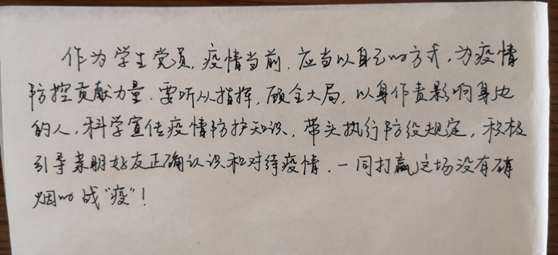 作为学生党员，疫情当前，应当以自己的方式，为疫情
防控贡献力量。要听从指挥，顾全大局，以身作责影响身边
的人，科学宣传疫情防护知识，带头执行防疫规定，积极
引导亲朋好友正确认识和对待疫情，一同打赢这场没有硝
烟的战“疫”！